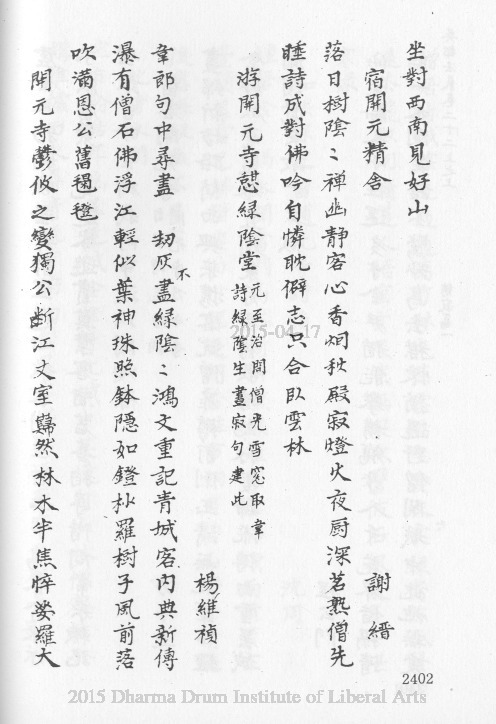 坐對西南見好山
宿開元精舍 謝縉
落日樹陰〻禪幽靜客心香烟秋殿寂燈火夜廚深茗熟僧先
睡詩成對佛吟自憐耽僻志只合臥雲林
游開元寺憇綠陰堂 元至治間僧光雪窓取韋詩綠陰生晝寂句建此
楊維禎
韋郎句中尋盡不刼灰盡綠陰〻鴻文重記青城客內典新傳
瀑有僧石佛浮江輕似葉神珠照鉢隱如鐙杪羅樹子風前落
吹滿恩公舊毾㲪
開元寺鬱攸之變獨公斷江丈室巋然林木半焦悴娑羅大
2015-04-17
2402
2015 Dharma Drum Institute of Liberal Arts